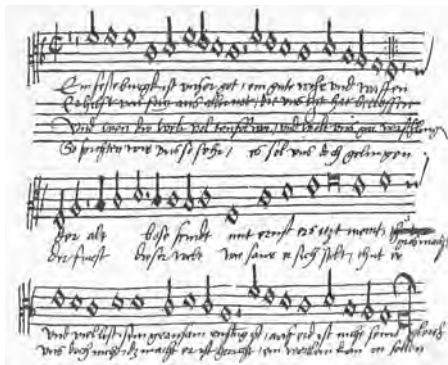 Ein feste burg ist unser got, ein gute wehr und waffen
Er hilft uns frey aus aller not, die uns itzt hat betroffen
Und wen die welt vol teuffel wer, und wolt uns gar verschlingen
So furchten wir uns so sehr, es sol uns doch gelingen
der alt bose feindt mit ernst ers itzt meint,
der furst dieser welt wie saur er sich stelt, thut er
und viel list, sein grausam rustung ist, auf erd ist nicht seins gleich
uns doch nicht, das macht er ist gericht, ein wortlein kan